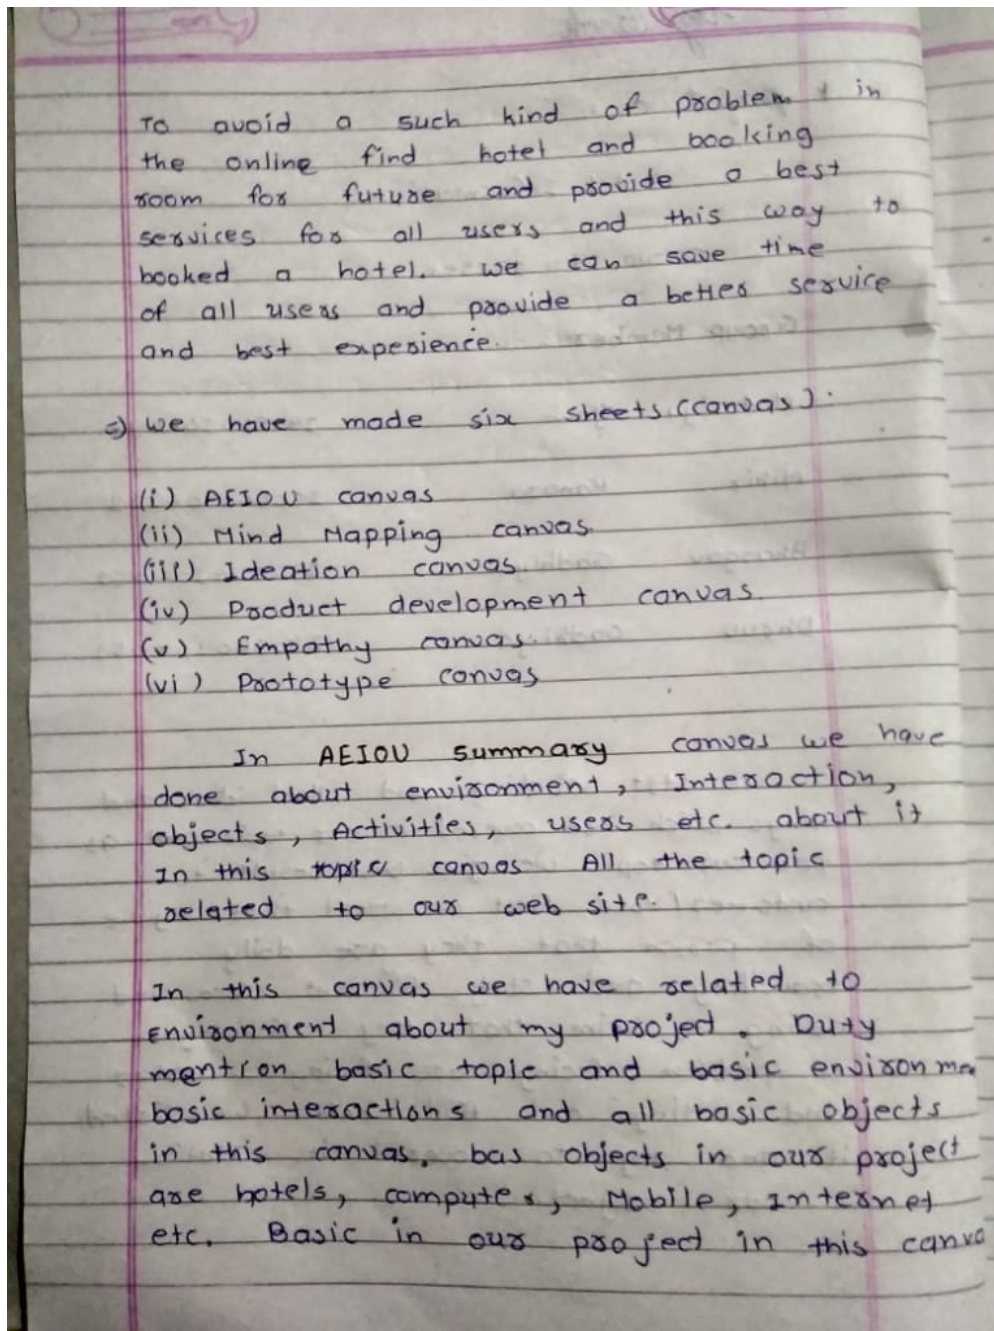 To avoid a such kind of problem in
the online find hotel and booking
room for future and provide a best
services for all users and this way to
booked a hotel. we can save time
of all users and provide a better service
and best experience.
=) we have made six sheets (canvas).
(i) AEIOU canvas
(ii) Mind Mapping canvas.
(iii) Ideation canvas
(iv) Product development canvas.
(v) Empathy canvas.
(vi) Prototype canvas
In AEIOU summary canvas we have
done about environment, Interaction,
objects, Activities, users etc. about it
In this topic canvas All the topic
related to our web site.
In this canvas we have related to
Environment about my project. Duty
mention basic topic and basic environmen
basic interactions and all basic objects
in this canvas, bas objects in our project
are hotels, computer, Mobile, Internet
etc. Basic in our project in this canva